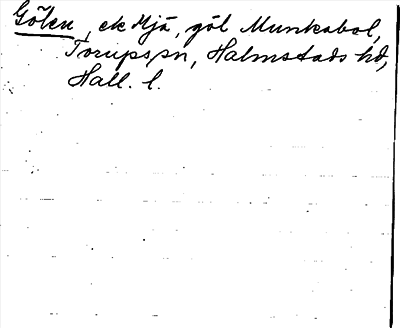 Gölen, ek Mjä, göl Munkabol,
Torups sn, Halmstads hd,
Hall. l.